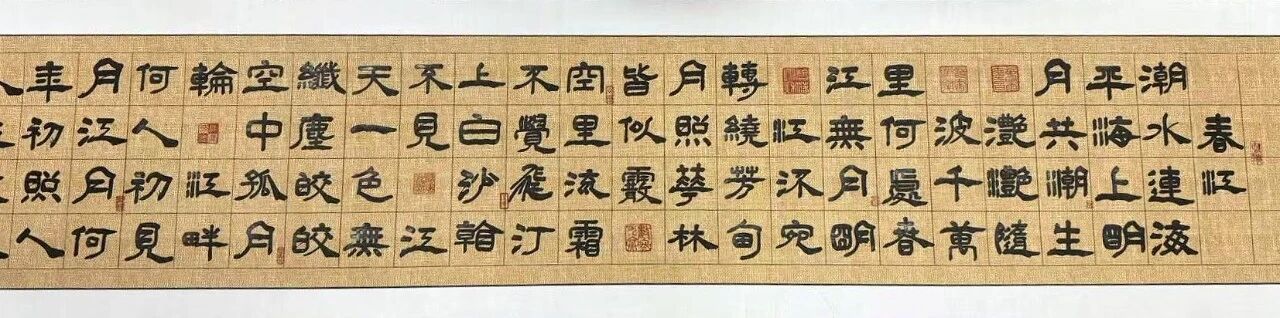 春江
潮水連海
平海上明
月共潮生
灧灧隨
波千萬
里何處春
江無月明
江流宛
轉繞芳甸
月照華林
皆似霰
空里流霜
不覺飛汀
上白沙看
不見江
天一色無
纖塵皎皎
空中孤月
輪江畔
何人初見
月江月何
年初照人